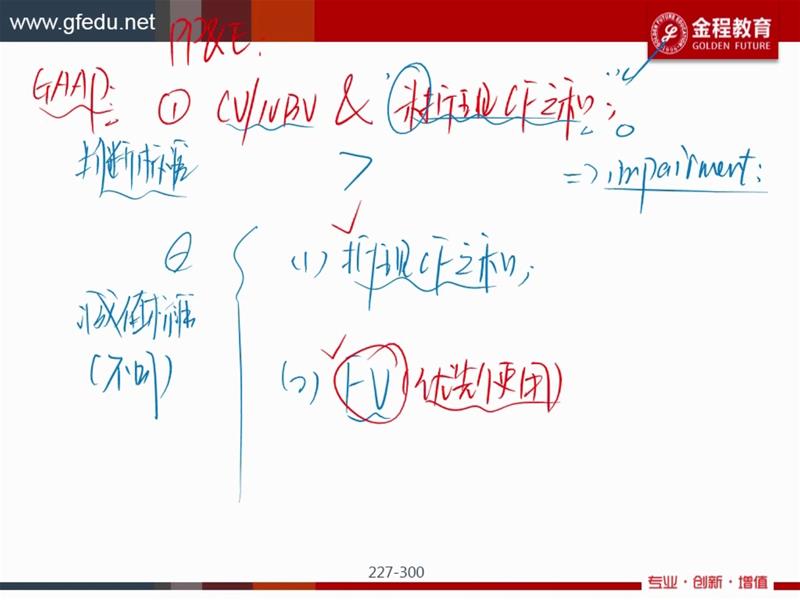 www.gfedu.net
金程教育
GOLDEN FUTURE
PP&E:
GAAP: ① CV/NBV & 未折现CF之和;
判断标准 > => impairment:
② (1) 折现CF之和;
减值标准
(不同) (2) FV (优先使用)
227-300
专业·创新·增值